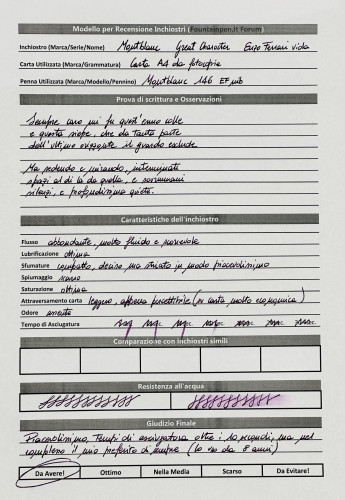 Modello per Recensione Inchiostri (Fountainpen.it Forum)
Inchiostro (Marca/Serie/Nome) Montblanc Great Character Enzo Ferrari viola
Carta Utilizzata (Marca/Grammatura) Carta A4 da fotocopie
Penna Utilizzata (Marca/Modello/Pennino) Montblanc 146 EF
Prova di scrittura e Osservazioni
Sempre caro mi fu quest'ermo colle
e questa siepe, che da tanta parte
dell'ultimo orizzonte il guardo esclude.
Ma sedendo e mirando, interminati
spazi al di là da quella, e sovrumani
silenzi, e profondissima quiete
Caratteristiche dell'inchiostro
Flusso abbondante, molto fluido e scorrevole
Lubrificazione ottima
Sfumature compatto, deciso, ma striato in modo piacevolissimo
Spiumaggio scarso
Saturazione ottima
Attraversamento carta leggero, appena percettibile (su carta molto economica)
Odore assente
Tempo di Asciugatura
Comparazione con inchiostri simili
Resistenza all'acqua
Giudizio Finale
Piacevolissimo. Tempi di asciugatura oltre i 10 secondi, ma nel
complesso il mio preferito di sempre (lo uso da 8 anni)
Da Avere! Ottimo Nella Media Scarso Da Evitare!